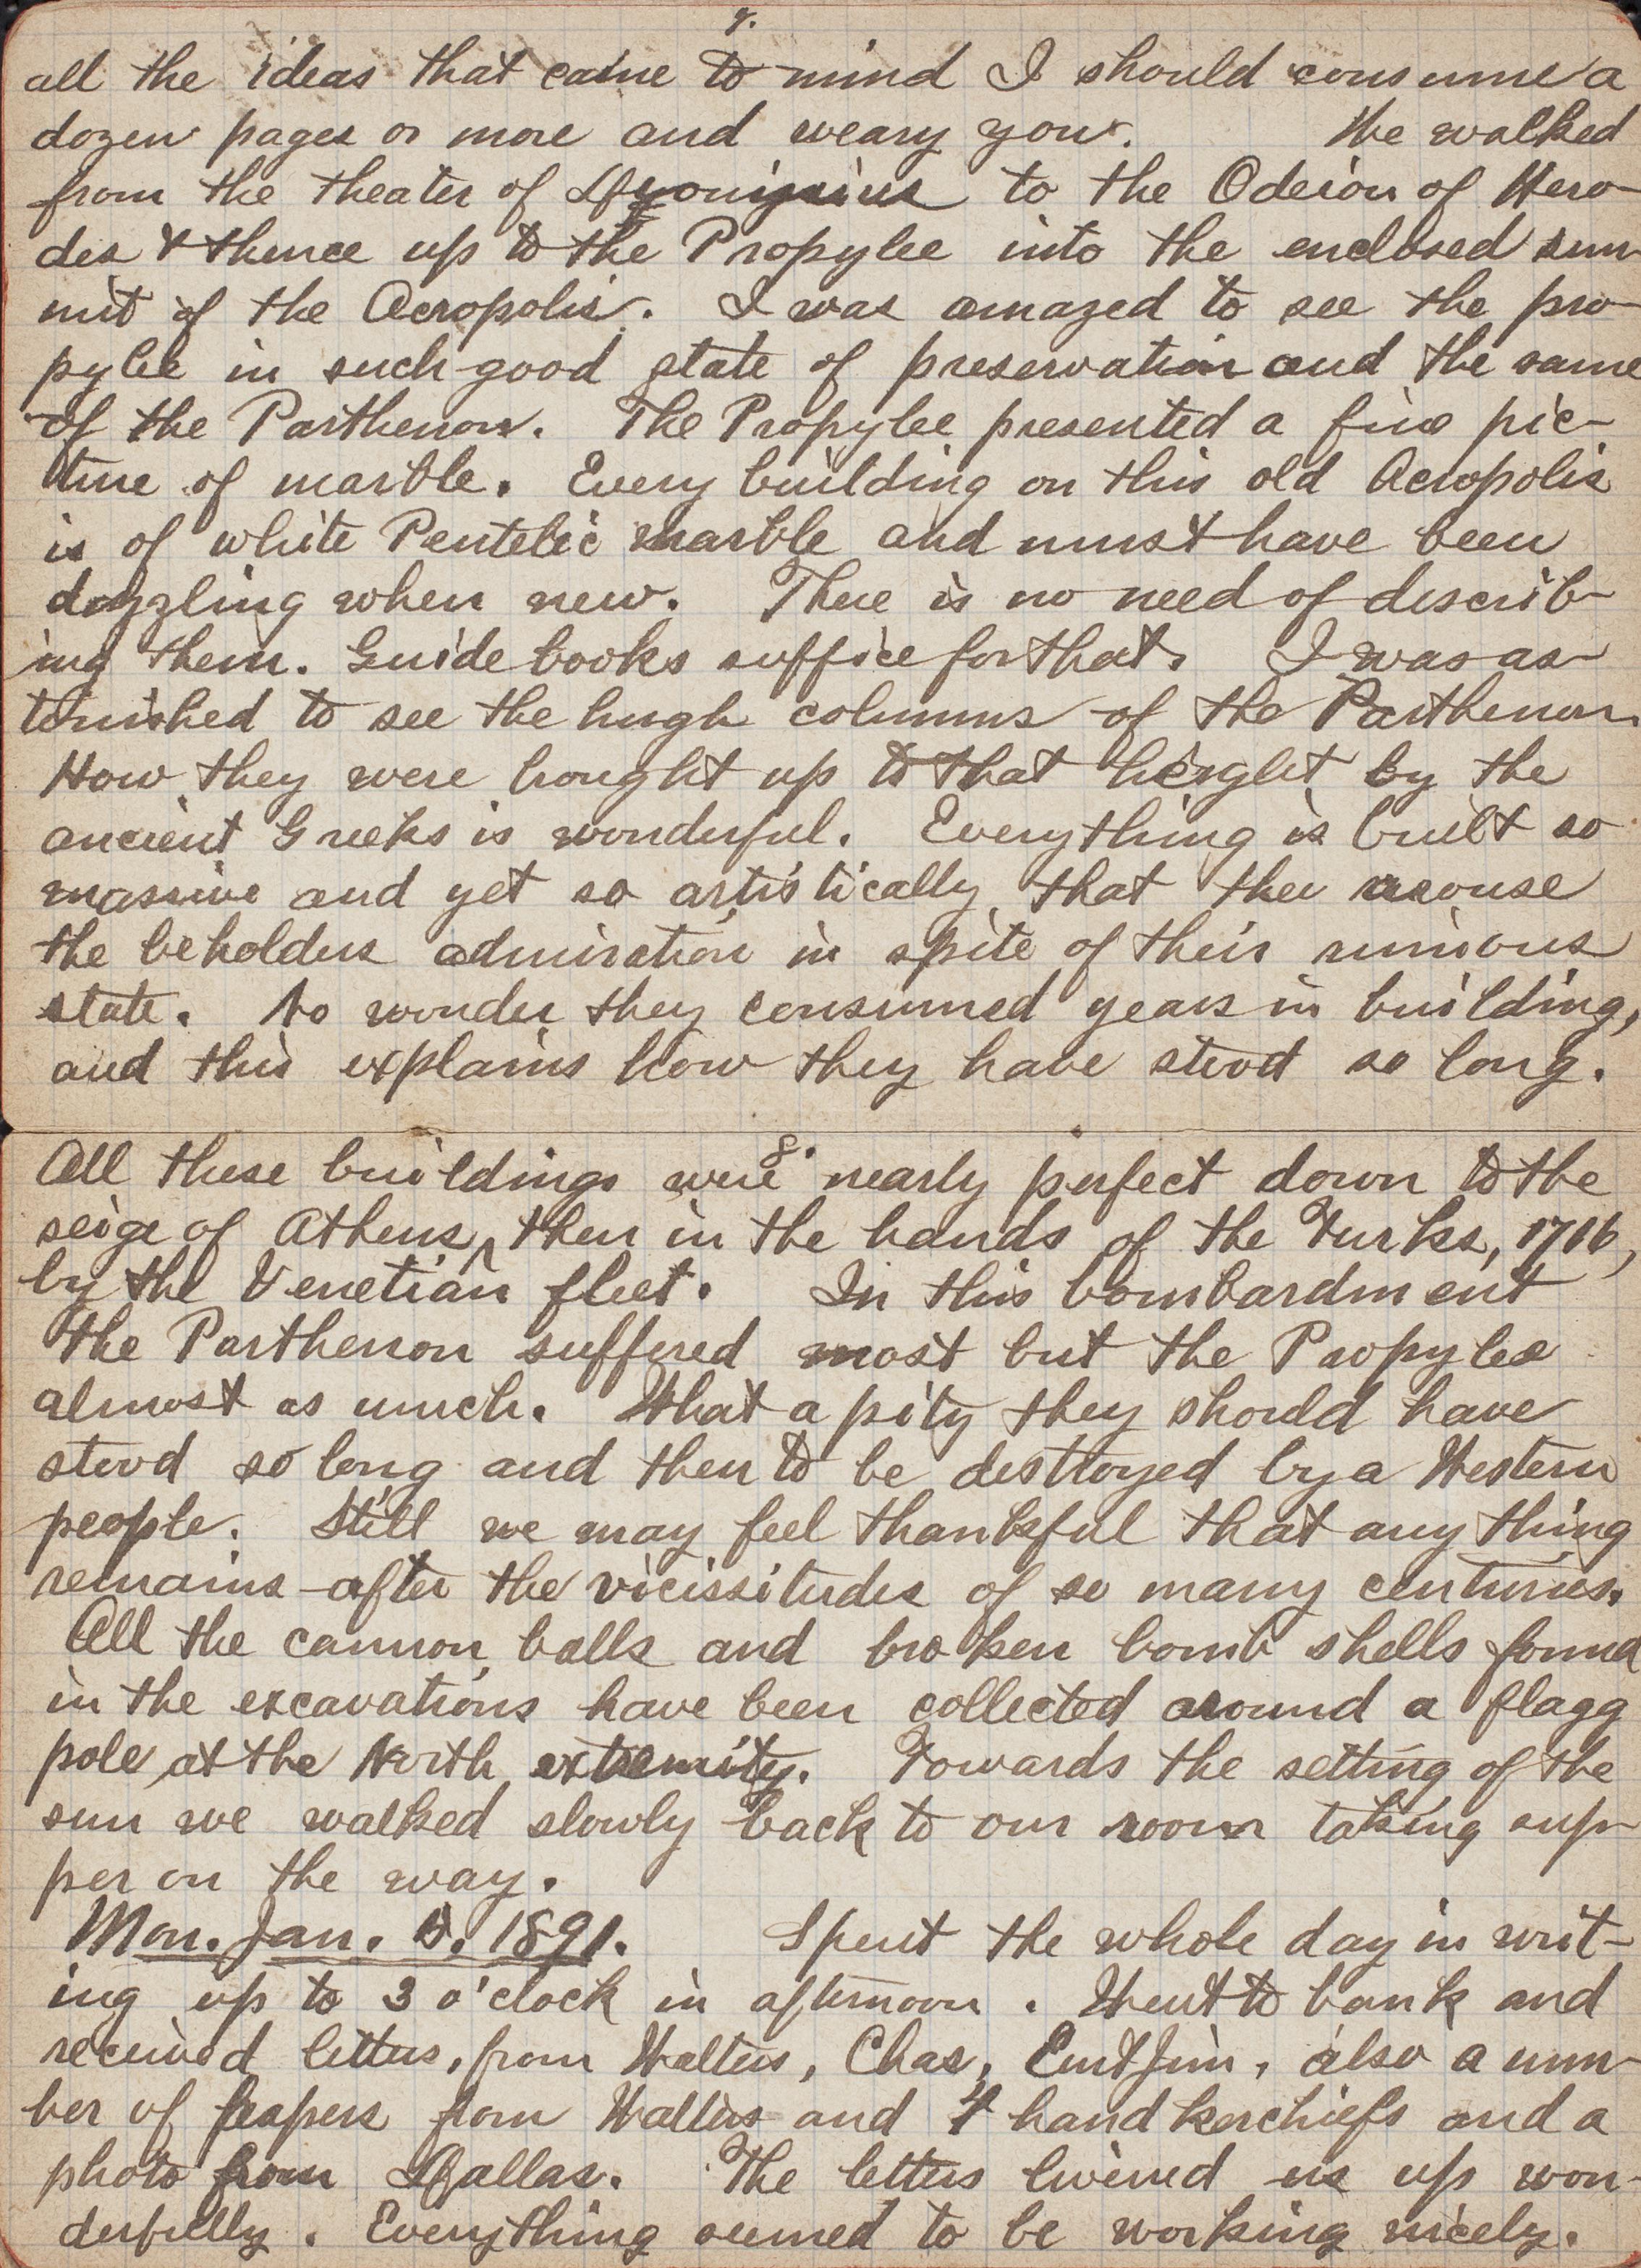 7.
all the ideas that came to mind I should consume a
dozen pages or more and weary you. We walked
from the theater of to the Odeion of Hero-
des & thence up to the Propylee into the enclosed sum-
mit of the Acropolis. I was amazed to see the pro-
pylee in such good state of preservation and the same
of the Parthenon. The Propylee presented a fine pic-
ture of marble. Every building on this old Acropolis
is of white Pentelic marble and must have been
dazzling when new. There is no need of describ-
ing them. Guide books suffice for that. I was as-
tonished to see the hugh columns of the Parthenon.
How they were brought up to that height by the
ancient Greeks is wonderful. Everything is built so
massive and yet so artistically that they arouse
the beholders admiration in spite of their ruinous
state. No wonder they consumed years in building,
and this explains how they have stood so long.
8.
All these buildings were nearly perfect down to the
seige of Athens, then in the hands of the Turks, 1716,
by the Venetian fleet. In this bombardment
the Parthenon suffered most but the Propylee
almost as much. What a pity they should have
stood so long and then to be destroyed by a Western
people. Still we may feel thankful that any thing
remains after the vicissitudes of so many centuries.
All the cannon balls and broken bomb shells found
in the excavations have been collected around a flagg
pole at the North extremity. Towards the setting of the
sun we walked slowly back to our room taking sup-
per on the way.
Mon. Jan. 1891. Spent the whole day in writ-
ing up to 3 o'clock in afternoon. Went to bank and
received letters, from Walters, Chas, also a num-
ber of papers from Walters and 4 handkerchiefs and a
photo from Dallas. The letters livened us up won-
derfully. Everything seemed to be working nicely.